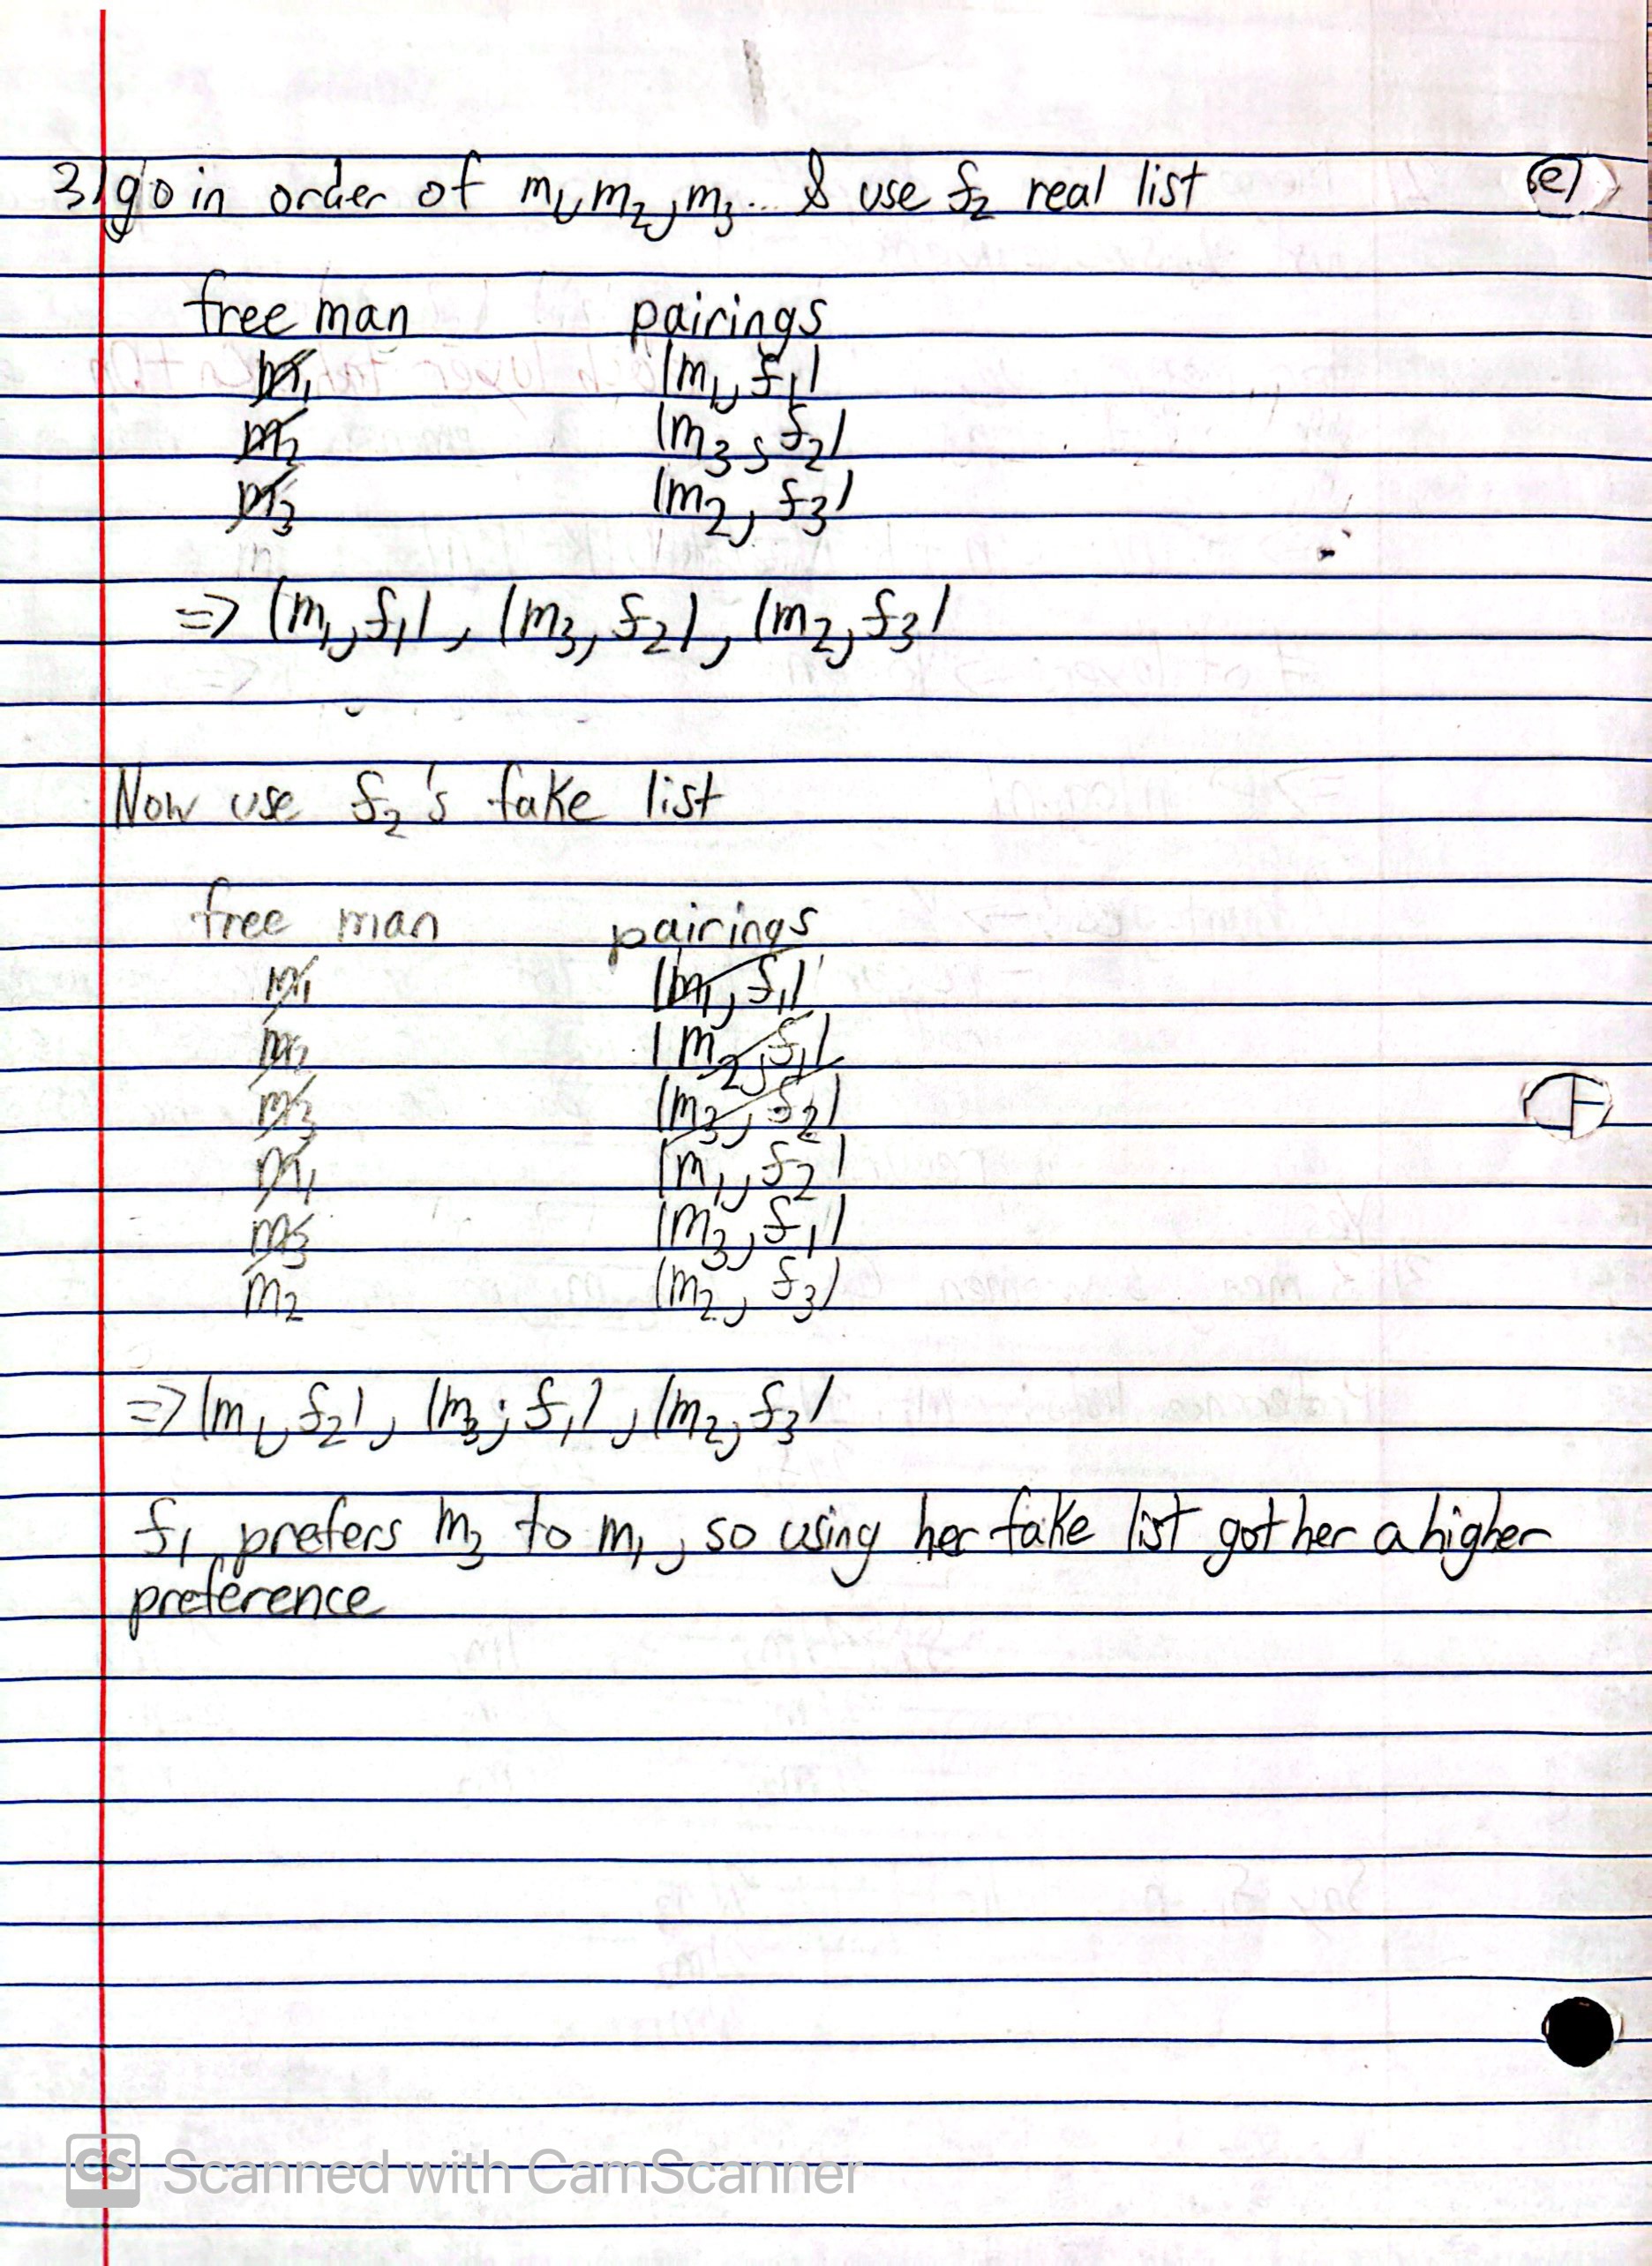 3) go in order of m₁, m₂, m₃... & use f₂ real list
free man pairings
m₁ (m₁, f₁)
m₂ (m₃, f₂)
m₃ (m₂, f₃)
=> (m₁, f₁), (m₃, f₂), (m₂, f₃)
Now use f₂'s fake list
free man pairings
m₁ (m₁, f₁)
m₂ (m₂, f₁)
m₃ (m₃, f₂)
m₁ (m₁, f₂)
m₃ (m₃, f₁)
m₂ (m₂, f₃)
=> (m₁, f₂), (m₃, f₁), (m₂, f₃)
f₁ prefers m₃ to m₁, so using her fake list got her a higher
preference
CS Scanned with CamScanner